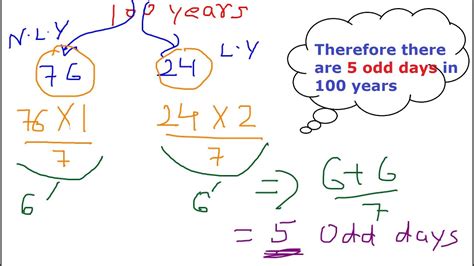 100 years
N.L.Y
L.Y
76
24
76 X 1
7
24 X 2
7
6
6
=> 6+6
7
= 5 Odd days
Therefore there
are 5 odd days in
100 years